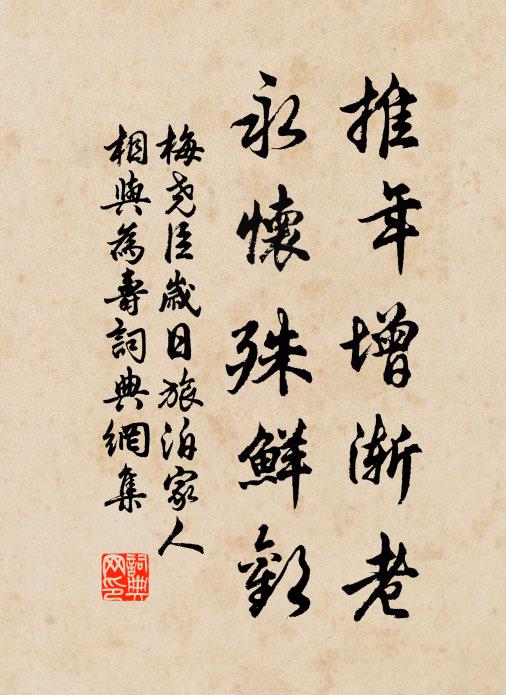 推年增漸老
永懷殊鮮歡
梅堯臣歲日旅泊家人
相與為壽詞典網集
詞典
网印